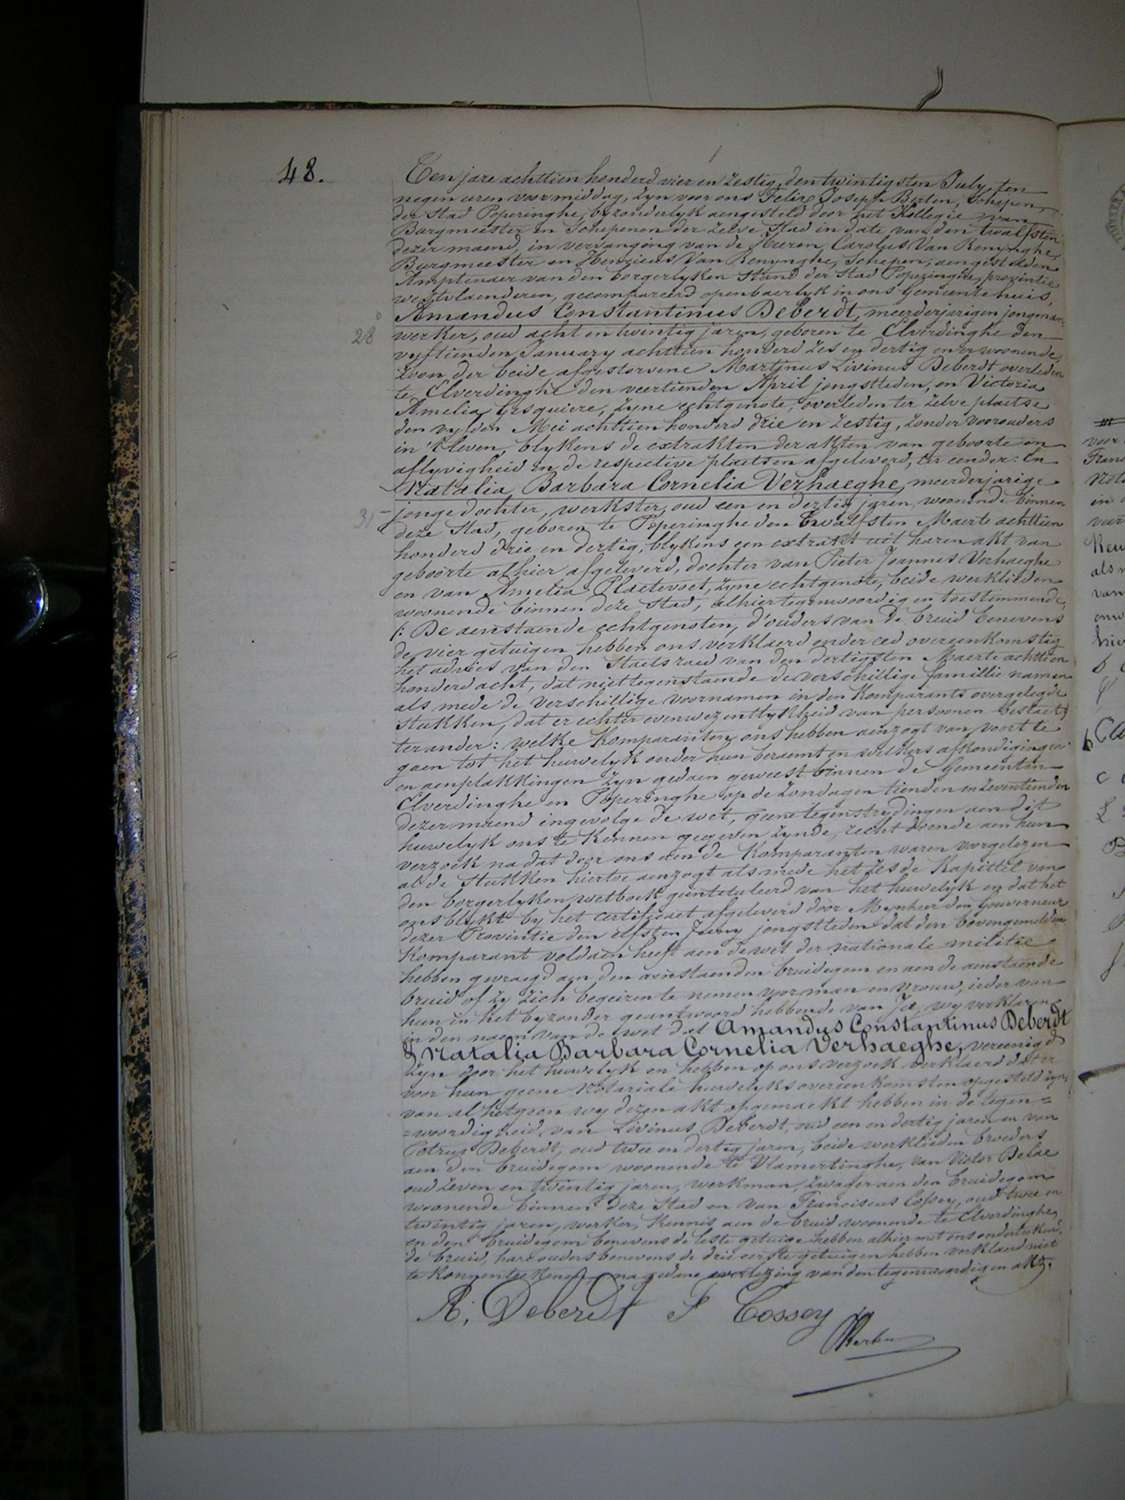 48.
Ten jare achttien honderd vier en zestig, den twintigsten July, ten
negen uren voormiddag, zyn voor ons Felix Joseph Berten, Schepen
der Stad Poperinghe, byzonderlyk aengesteld door het Kollegie van
Burgmeester en Schepenen der zelve Stad in date van den twaelfsten
dezer maend, in vervanging van de Heeren Carolus Van Renynghe,
Burgmeester en Henricus Van Renynghe, Schepen, aengestelden
Amptenaer van den borgerlyken stand der Stad Poperinghe, provintie
westvlaenderen, gecompareerd openbaerlyk in ons Gemeentehuis,
Amandus Constantinus Deberdt, meerderjarigen jongman
28
werker, oud acht en twintig jaren, geboren te Elverdinghe den
vyftienden January achttien honderd zes en dertig en er woonende,
zoon der beide afgestorvene Martinus Livinus Deberdt overleden
te Elverdinghe den veertienden April jongstleden, en Victoria
Amelia Lesquiere, zyne echtgenote, overleden ter zelve plaetse
den vyfden Mei achttien honderd drie en zestig, zonder voorouders
in 't leven, blykens de extrakten der akten van geboorte en
aflyvigheid in de respective plaetsen afgeleverd, ter eender: En
Natalia Barbara Cornelia Verhaeghe, meerderjarige
31
jonge dochter, werkster, oud een en dertig jaren, woonende binnen
deze Stad, geboren te Poperinghe den Twaelfsten Maerte achttien
honderd drie en dertig, blykens een extrakt uit haren akt van
geboorte alhier afgeleverd, dochter van Pieter Joannes Verhaeghe
en van Amelia Plaetevoet, zyne echtgenote, beide werklieden
woonende binnen deze Stad, alhier tegenwoordig en toestemmende,
(: De aenstaende echtgenoten, d'ouders van de bruid benevens
de vier getuigen hebben ons verklaerd onder eed overeenkomstig
het advies van den Staetsraed van den dertigsten Maerte achttien
honderd acht, dat niettegenstaende de verschillige famillie namen
als mede de verschillige voornamen in den komparants overgelegde
stukken, dat er echter evenwezentlykheid van persoonen bestaet)
ter ander: welke komparanten ons hebben aenzogt van voort te
gaen tot het huwelyk onder hun beraemt en welkers afkondigingen
en aenplakkingen zyn gedaen geweest binnen de Gemeenten
Elverdinghe en Poperinghe op de zondagen tienden en zeventienden
dezer maend ingevolge de wet, geene tegenstrydingen aen dit
huwelyk ons te kennen gegeven zynde, recht doende aen hun
verzoek na dat door ons aen de komparanten waren vorgelezen
al de Stukken hiertoe aenzogt als mede het zesde kapittel van
den borgerlyken wetboek geintituleerd van het huwelyk en dat het
ons blykt by het certificaet afgeleverd door Mynheer den Gouverneur
dezer Provintie den elfsten Juny jongstleden dat den bovengemelden
komparant voldaen heeft aen de wet der nationale militie
hebben gevraegd aen den aenstaenden bruidegom en aen de aenstaende
bruid of zy zich begeiren te nemen voor man en vrouw, ieder van
hun in het byzonder geantwoord hebbende van Ja, wy verklaren
in den naem van de wet dat Amandus Constantinus Deberdt
& Natalia Barbara Cornelia Verhaeghe, vereenigd
zyn door het huwelyk en hebben op ons verzoek verklaerd dat er
voor hun geene notariale huwelyks overeenkomsten opgesteld zyn,
van al hetgeen wy dezen akt opgemaekt hebben in de tegen=
=woordigheid van Livinus Deberdt oud een en dertig jaren en van
Petrus Deberdt, oud twee en dertig jaren, beide werklieden broeders
aen den bruidegom woonende te Vlamertinghe, van Victor Belae
oud zeven en twintig jaren, werkman, zwager aen den bruidegom
woonende binnen deze Stad en van Franciscus Cossey, oud twee en
twintig jaren, werker, kennis aen de bruid woonende te Elverdinghe
en den bruidegom benevens de leste getuige hebben alhier met ons onderteekend,
de bruid, hare ouders benevens de drie eerste getuigen hebben verklaerd niet
te konnen teekenen na gedane voorlezing van den tegenwoordigen akt.
A. Deberdt F Cossey
Berten